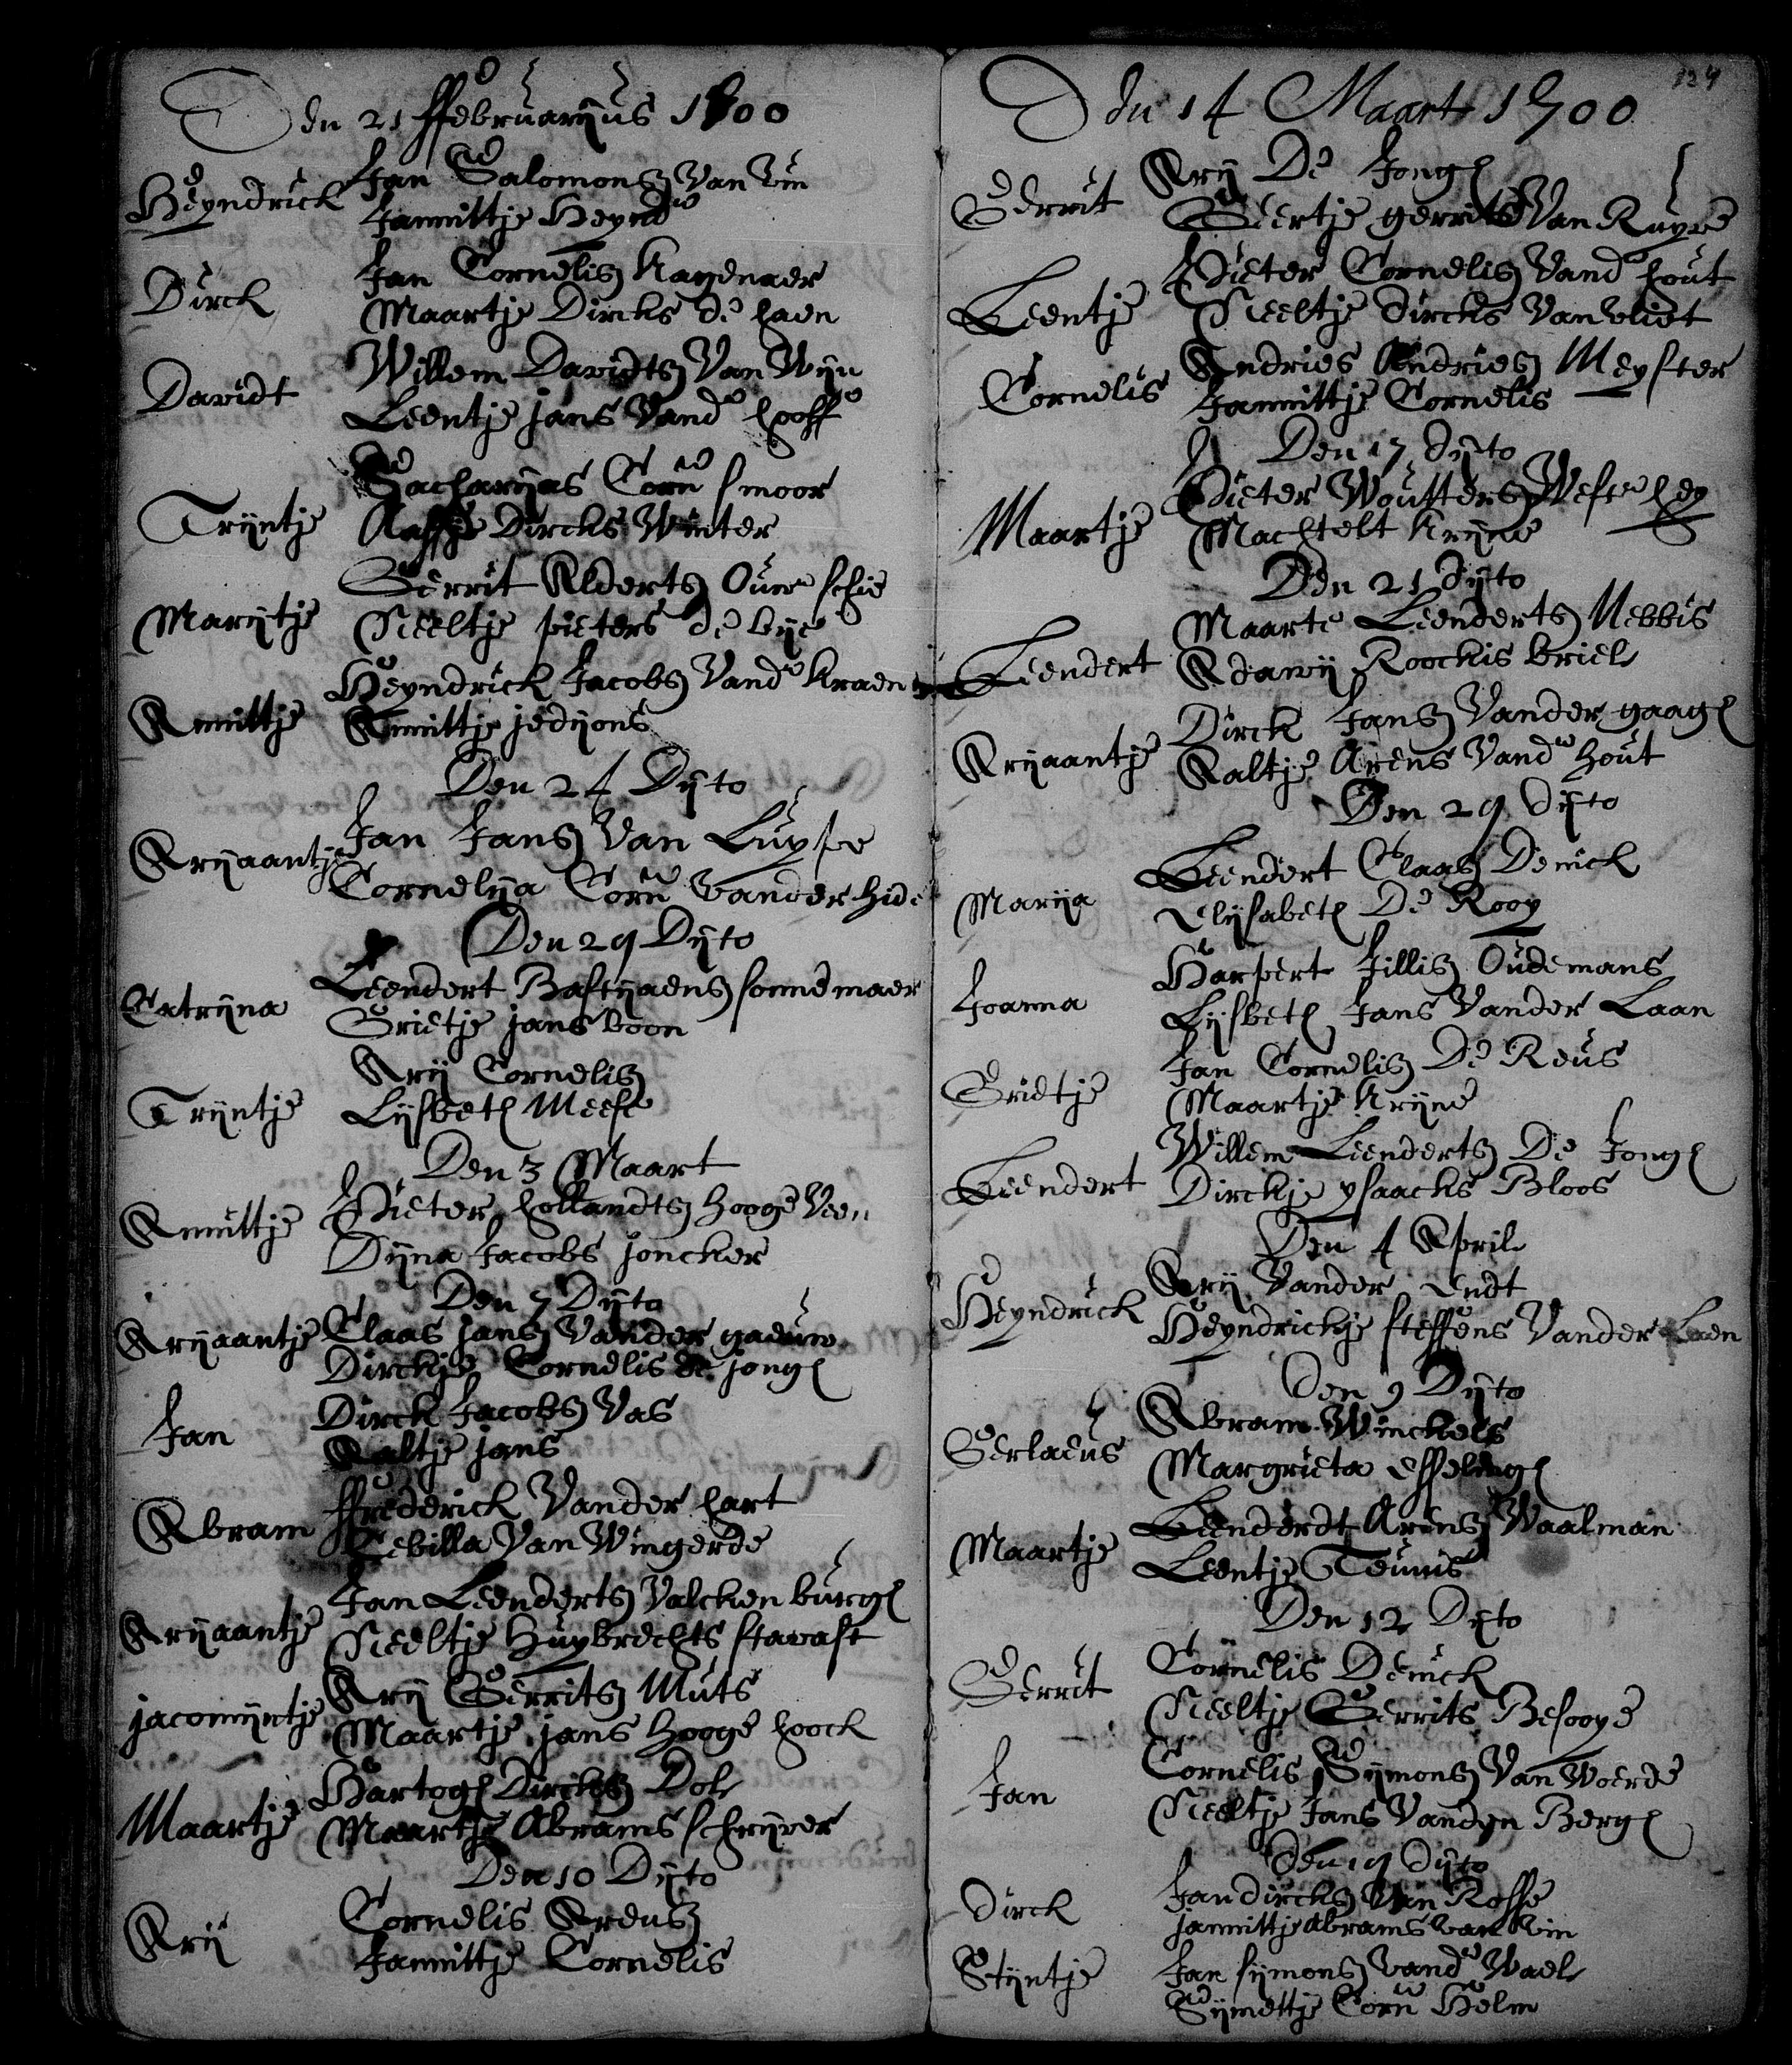 Den 21 ffebruarijus 1700
Heyndrick Jan Salomonsz van
Jannittje Heynd
Dirck Jan Cornelisz Kagenaer
Maartje Dircks de haen
Davidt Willem Davidtsz van Wijn
Leentje jans vand hooff
Trijntje Sacharijas Corn smoor
Aaffje Dircks Winter
Marijtje Gerrit Alderts Ouwe schie
Neeltje pieters de bije
Annittje Heyndrick Jacobsz vand Kraen
Annittje jedijons
Den 24 Dijto
Arijaantje Jan Jansz van Luyste
Cornelija Corn vander hide
Den 29 Dijto
Catrijna Leendert Bastijaensz sonnemaer
Grietje jans boon
Trijntje Arij Cornelisz
Lijsbeth Meese
Den 3 Maart
Annittje Pieter hollandtsz hooge Veen
Dijna Jacobs joncker
Den 7 Dijto
Arijaantje Claas jansz vander gaeuw
Dirckje Cornelis de jongh
Jan Dirck Jacobsz Vas
Aaltje jans
Abram ffrederick vander hart
Sebilla van Wingerde
Arijaantje Jan Leenderts Valckenburgh
Neeltje Huybrechts stavast
jacomijntje Arij Gerritsz Muts
Maartje jans hooge hoock
Maartje Hartogh Dircksz Dol
Maartje Abrams schrijver
Den 10 Dijto
Arij Cornelis Arensz
Jannittje Cornelis
124
Den 14 Maart 1700
Gerrit Arij De Jongh
Geertje gerrits van Ruyve
Leentje Pieter Cornelisz vand hout
Neeltje dircks van vliet
Cornelis Andries Andriesz Meyster
Jannittje Cornelis
Den 17 dijto
Maartje Pieter Woutersz Westerhey
Machtelt Krijne
Den 21 Dijto
Leendert Maarte Leendertsz Nebbis
Roockis briel
Arijaantje Dirck Jansz vander gaagh
Aaltje Arens vand hout
Den 29 dijto
Marija Leendert Claasz Denick
Elijsabeth De Rooy
Joanna Harpert Jillisz Oudemans
Lijsbeth Jans vander Laan
Grietje Jan Cornelisz De Reus
Maartje Krijne
Leendert Willem Leendertsz De Jongh
Dirckje ysaacks Bloos
Den 4 April
Heyndrick Arij vander endt
Heyndrickje steffens vander Laen
Den 9 Dijto
Gerlaeus Abram Winckels
Margrieta effelingh
Maartje Leenderdt Arensz Waalman
Leentje Teunis
Den 12 Dijto
Gerrit Cornelis Denick
Neeltje Gerrits Besooye
Jan Cornelis Sijmonsz van Woerde
Neeltje Jans vanden Bergh
Den 19 dijto
Dirck Jan dircksz van Rosse
jannittje abrams van
Stijntje Jan sijmonsz vand Wael
Sijmettje Corn Helm